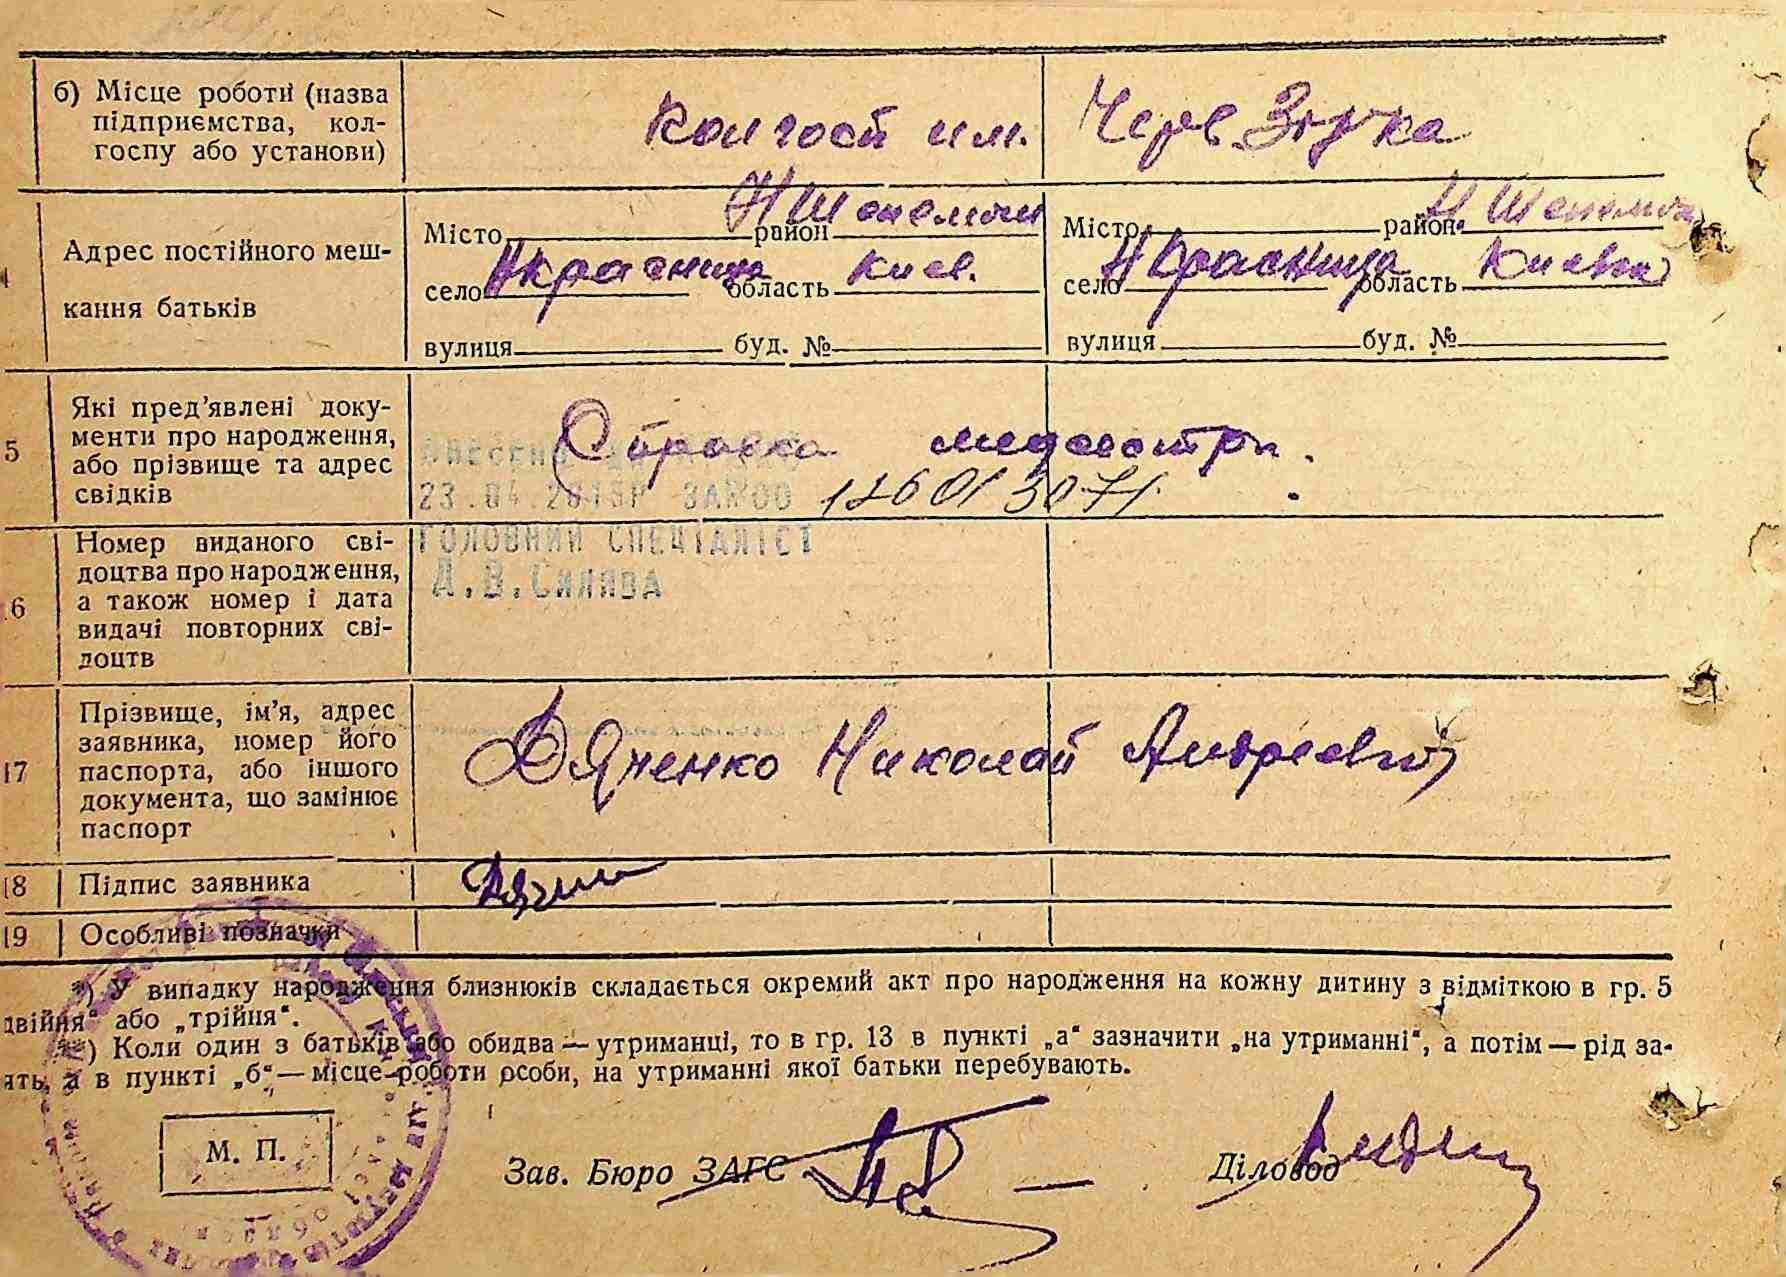 б) Місце роботи (назва
підприємства, кол-
госпу або установи)
Колгосп им. Черв Зірка
4 Адрес постійного меш-
кання батьків
Місто район Н Шепелич
село Н Красниця область Киев.
вулиця буд. №
Місто район Н Шепелич
село Н Красница область Киевск
вулиця буд. №
5 Які пред’явлені доку-
менти про народження,
або прізвище та адрес
свідків
Справка медсестри.
12601307
Внесено до
23.04.201 Р ЗА 00
ГОЛОВНИЙ СПЕЦІАЛІСТ
.В.Силява
.6 Номер виданого сві-
доцтва про народження,
а також номер і дата
видачі повторних сві-
доцтв
17 Прізвище, ім’я, адрес
заявника, номер його
паспорта, або іншого
документа, що замінює
паспорт
Дяченко Николай Андреевич
18 Підпис заявника
19 Особливі позначки
*) У випадку народження близнюків складається окремий акт про народження на кожну дитину з відміткою в гр. 5
двійня“ або „трійня“.
**) Коли один з батьків або обидва — утриманці, то в гр. 13 в пункті „а“ зазначити „на утриманні“, а потім — рід за-
ять, а в пункті „б“ — місце роботи особи, на утриманні якої батьки перебувають.
М. П.
Зав. Бюро ЗАГС
Діловод